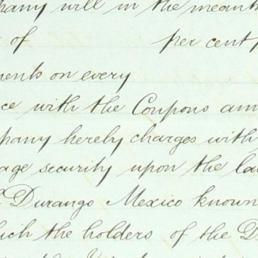 pany will in the meant
of per cent p
ments on every
ce with the Coupons ann
pany hereby charges with
age security upon the la
Durango Mexico known
ich the holders of the D